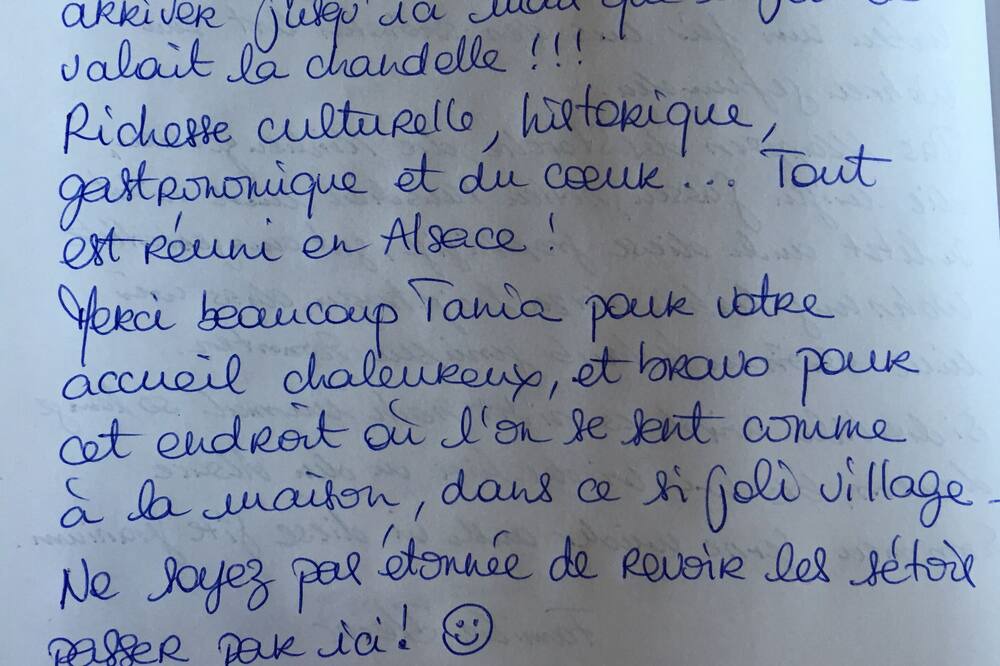 arriver jusqu'ici mais que
valait la chandelle !!!
Richesse culturelle, historique,
gastronomique et du cœur... Tout
est réuni en Alsace !
Merci beaucoup Tania pour votre
accueil chaleureux, et bravo pour
cet endroit où l'on se sent comme
à la maison, dans ce si joli village -
Ne soyez pas étonnée de revoir les sétois
passer par ici ! ☺